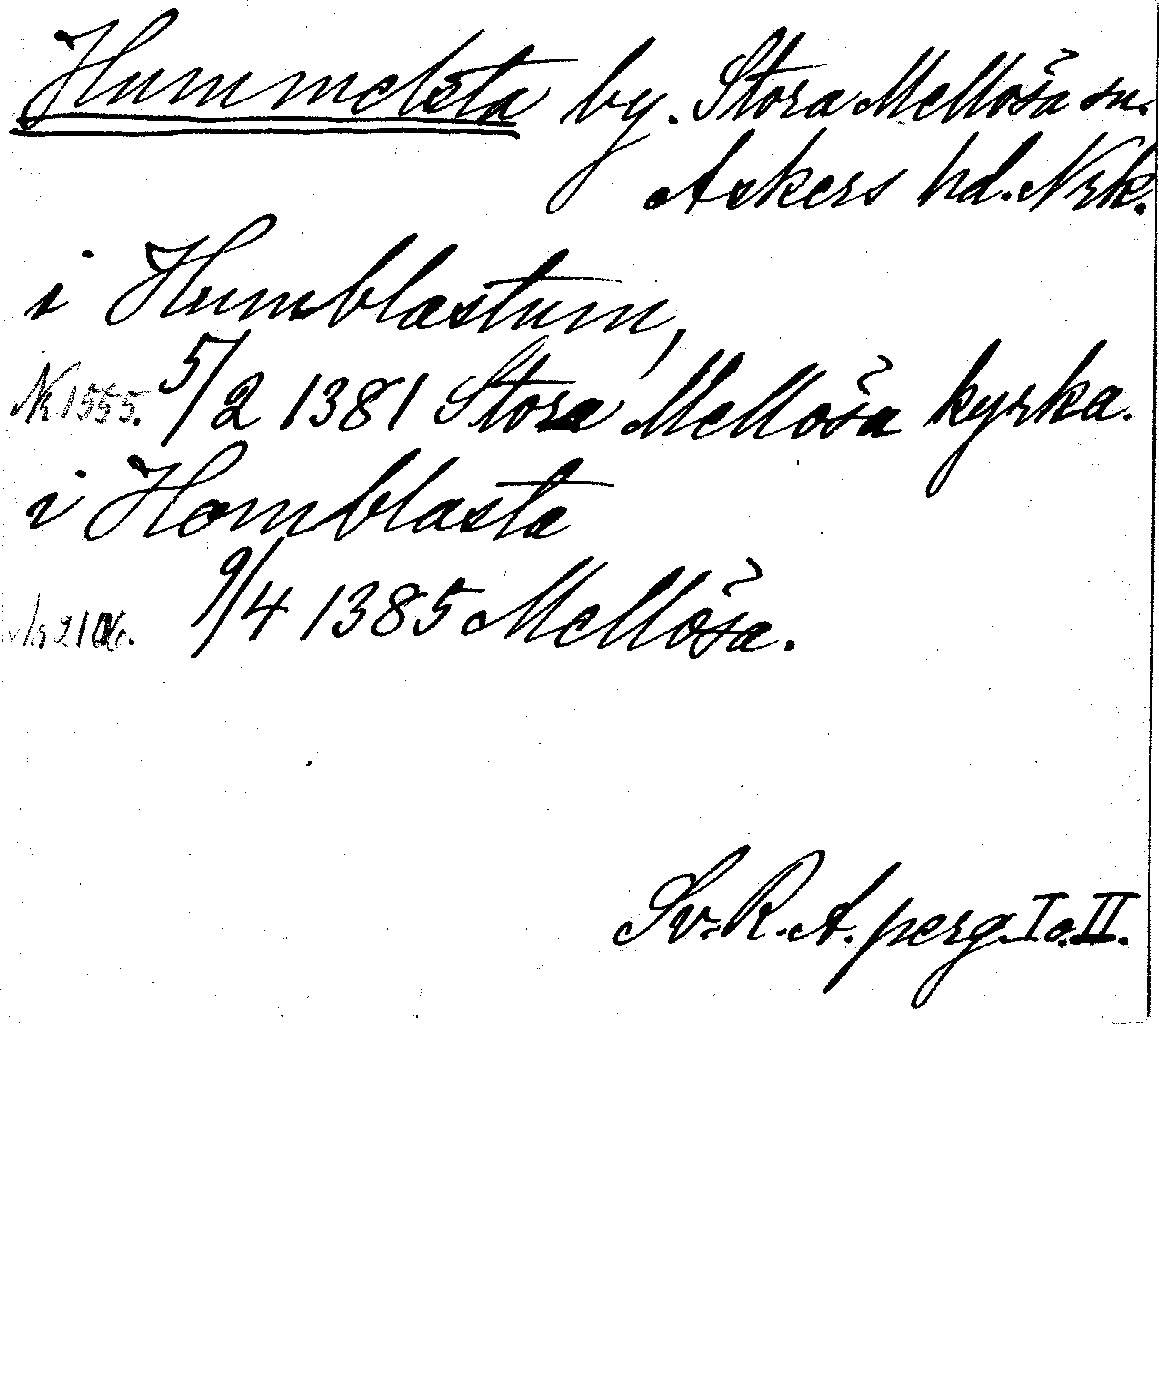 Hummelsta by. Stora Mellösa sn.
Askers hd. Nrk.
i Humblastum,
Nr 1555. 5/2 1381 Stora Mellösa kyrka.
i Homblasta
9/4 1385 Mellösa.
Sv. R. A. perg. I o. II.